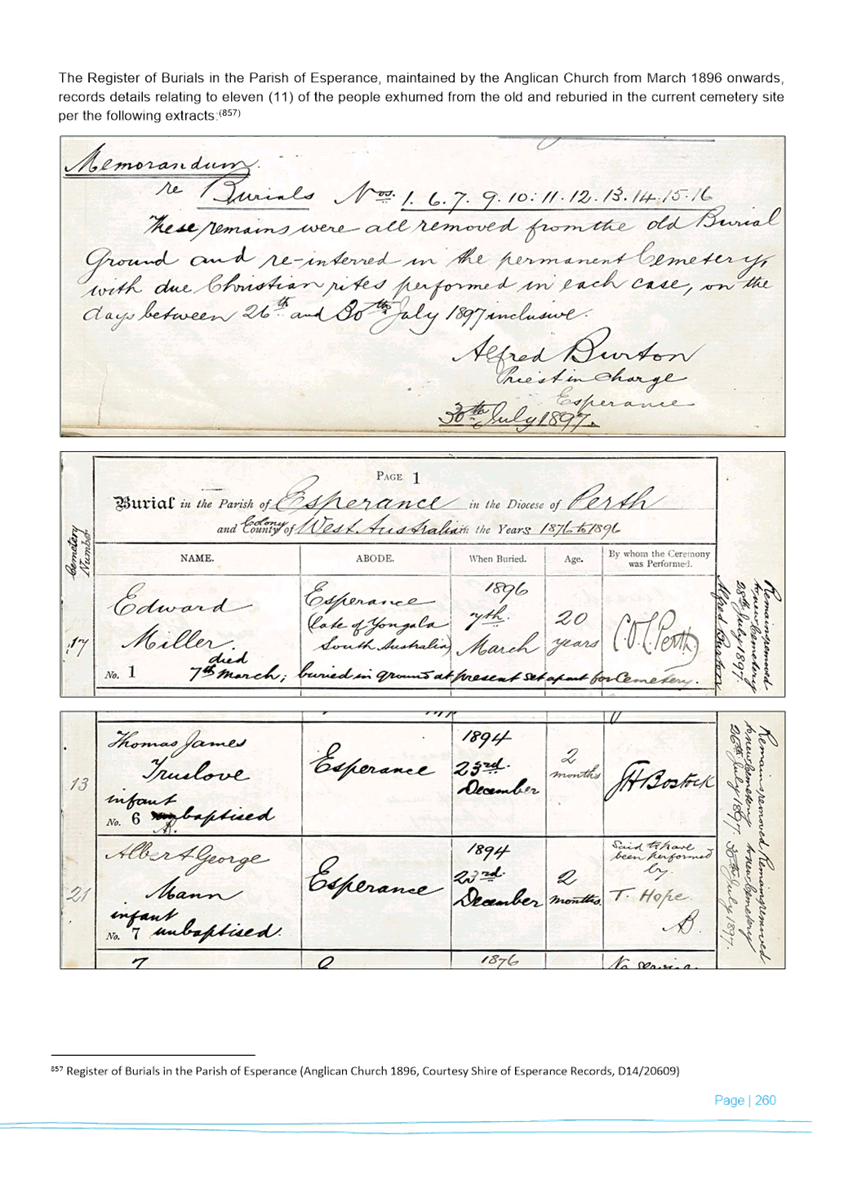 The Register of Burials in the Parish of Esperance, maintained by the Anglican Church from March 1896 onwards,
records details relating to eleven (11) of the people exhumed from the old and reburied in the current cemetery site
per the following extracts:(857)
Memorandum.
re Burials Nos. 1. 6. 7. 9. 10: 11. 12. 13. 14. 15. 16
These remains were all removed from the old Burial
Ground and re-interred in the permanent Cemetery,
with due Christian rites performed in each case, on the
days between 26th and 30th July 1897 inclusive.
Alfred Burton
Priest in Charge
Esperance
30th July 1897.
PAGE 1
Burial in the Parish of Esperance in the Diocese of Perth
and County Colony of West Australia in the Years 1876 to 1896
Cemetery Number
NAME. ABODE. When Buried. Age. By whom the Ceremony was Performed.
17
Edward Miller
Esperance
(late of Yongala
South Australia)
1896
7th
March
20
years
Perth
No. 1 died 7th March; buried in ground at present set apart for Cemetery.
Remains removed
to new Cemetery
28th July 1897.
Alfred Burton
13
Thomas James
Truslove
infant
No. 6 unbaptised
Esperance
1894
23rd
December
2
months
JH Bostock
Remains removed
to new Cemetery
26th July 1897.
21
Albert George
Mann
infant
No. 7 unbaptised.
Esperance
1894
23rd
December
2
months.
Said to have
been performed
by
T. Hope.
AB.
Remains removed
to new Cemetery
30th July 1897.
1876
No service
857 Register of Burials in the Parish of Esperance (Anglican Church 1896, Courtesy Shire of Esperance Records, D14/20609)
Page | 260